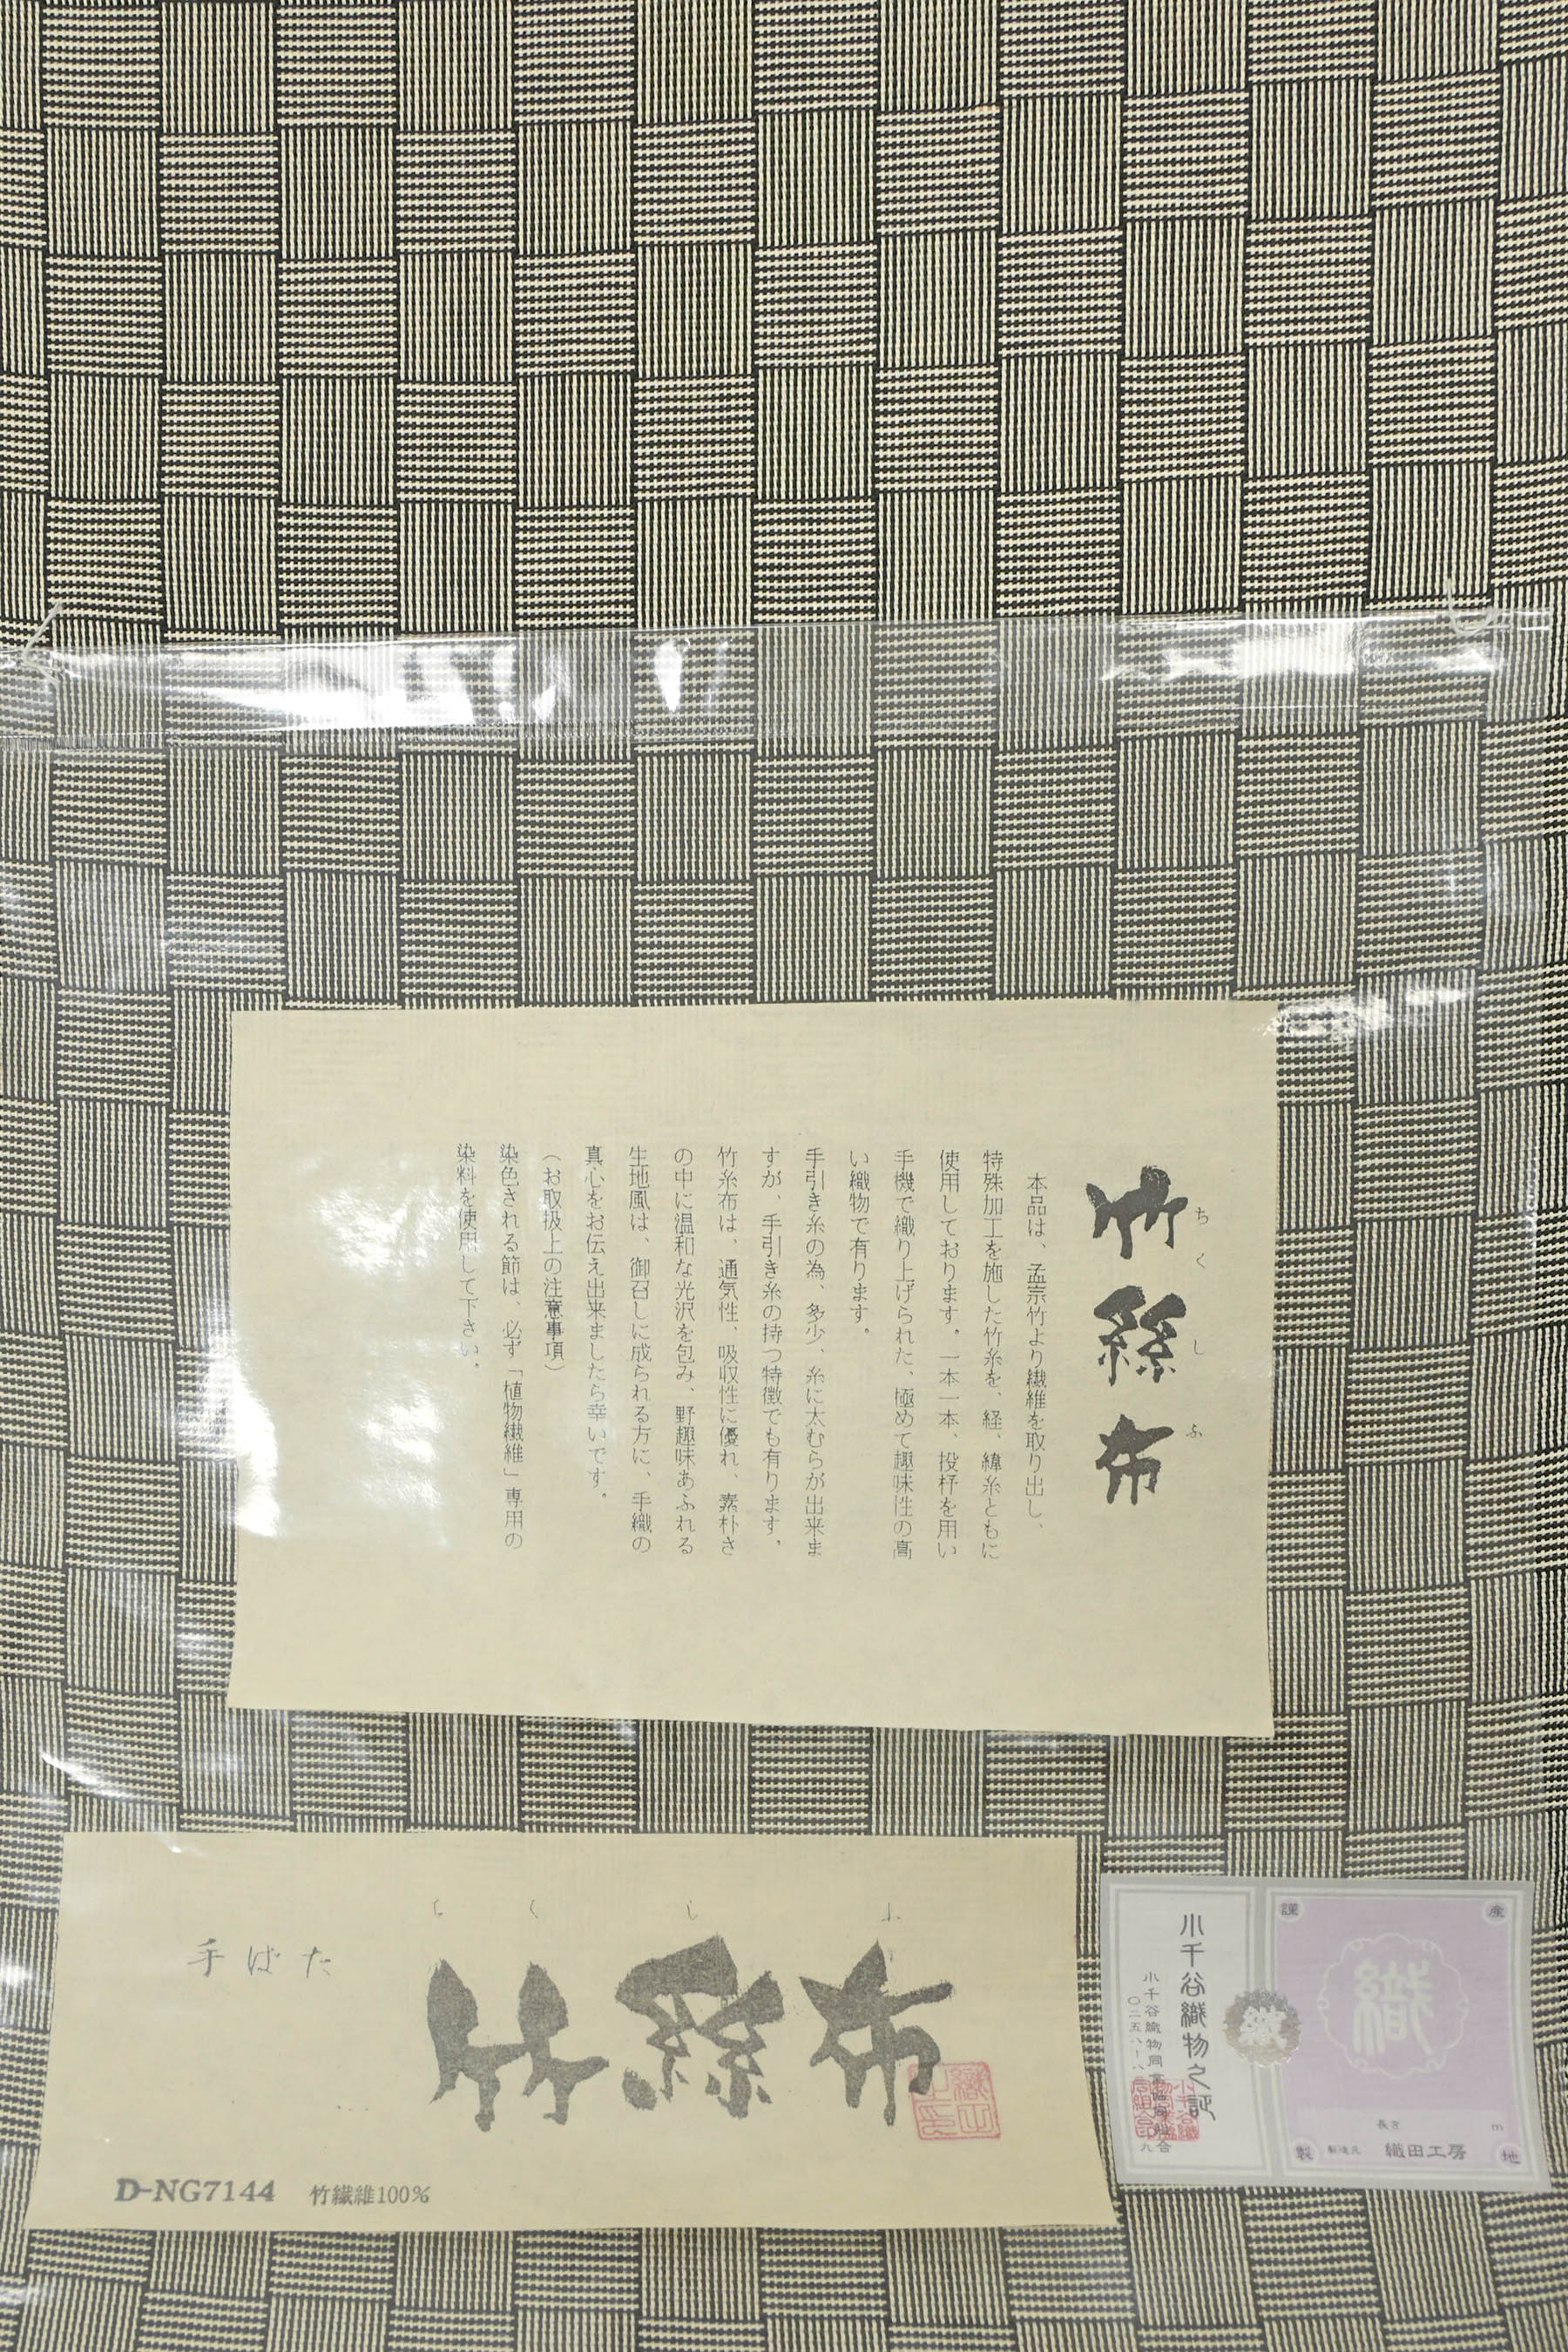 竹絲布
ちくしふ
本品は、孟宗竹より繊維を取り出し、
特殊加工を施した竹糸を、経、緯糸ともに
使用しております。一本一本、投杼を用い
手機で織り上げられた、極めて趣味性の高
い織物で有ります。
手引き糸の為、多少、糸に太むらが出来ま
すが、手引き糸の持つ特徴でも有ります。
竹糸布は、通気性、吸収性に優れ、素朴さ
の中に温和な光沢を包み、野趣味あふれる
生地風は、御召しに成られる方に、手織の
真心をお伝え出来ましたら幸いです。
（お取扱上の注意事項）
染色される節は、必ず「植物繊維」専用の
染料を使用して下さい。
ちくしふ
竹絲布
手ばた
D-NG7144 竹繊維100%
小千谷織物之証
小千谷織物同業協同組合
織
謹産
織
長さ m
製造元 織田工房
製地